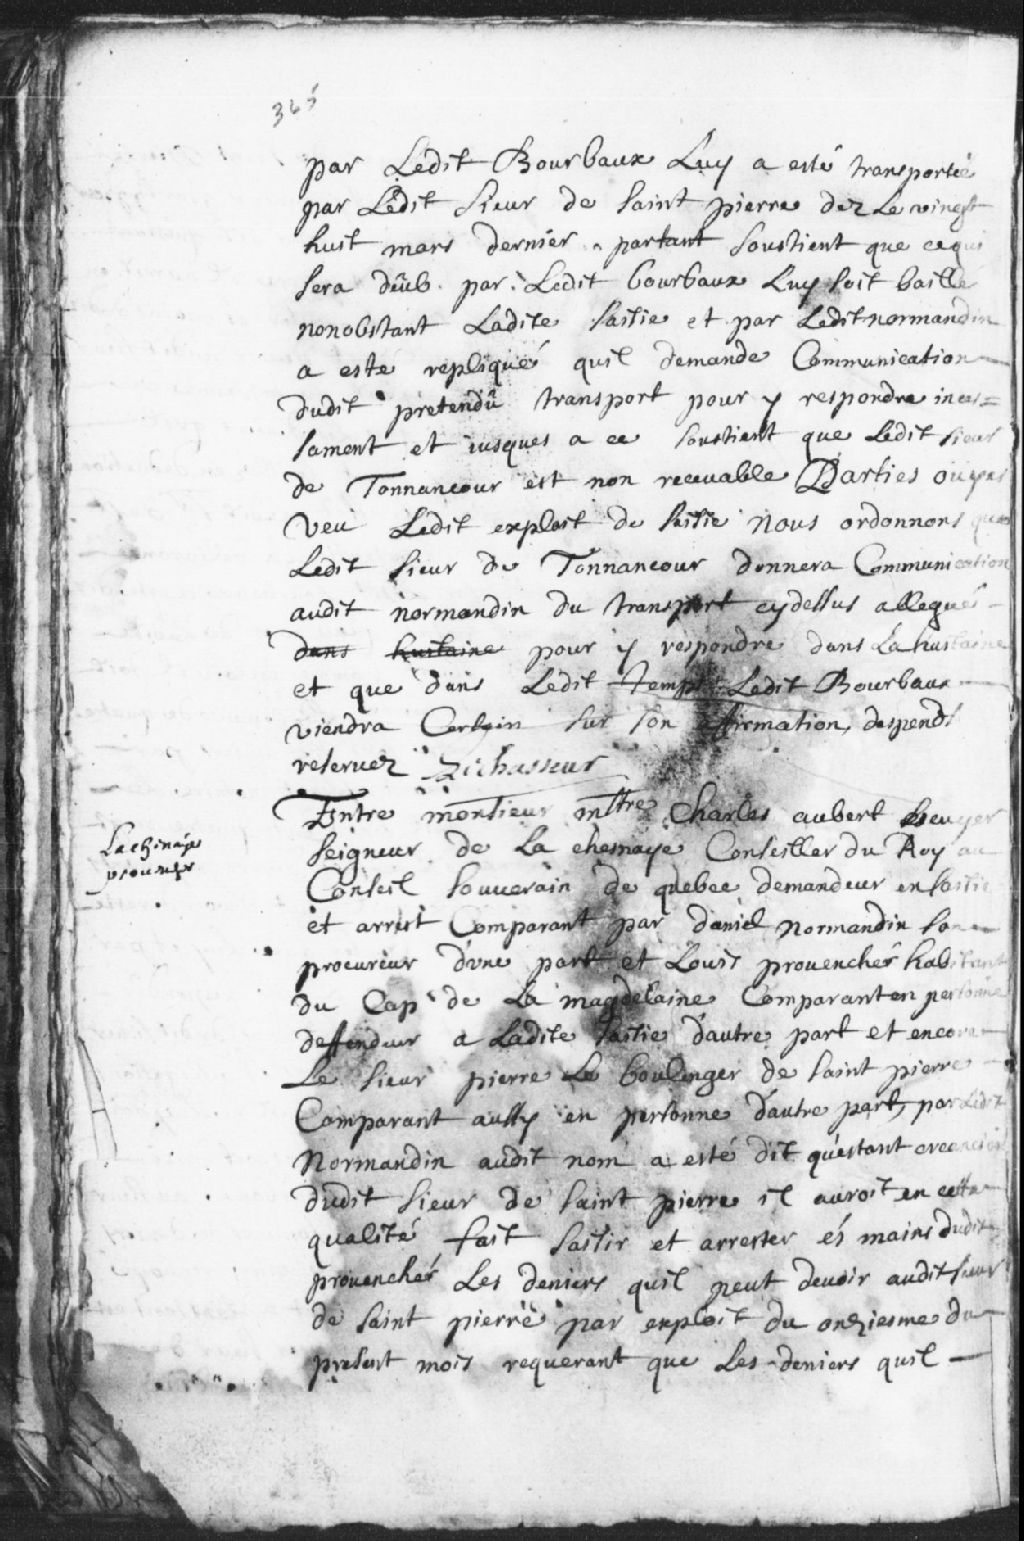 365
par Ledit Bourbaux Luy a esté transportée
par Ledit Sieur de Saint pierre dez Le vingt
huit mars dernier partant soustient que ce qui
sera dëub par Ledit bourbaux Luy soit baillé
nonobstant Ladite saisie et par Ledit normandin
a esté repliqué quil demande Communication
dudit pretendû transport pour y respondre inces=
sament et iusques a ce soustient que Ledit sieur
de Tonnancour est non receuable Parties ouyes
veu Ledit exploit de saisie Nous ordonnons que
Ledit sieur de Tonnancour donnera Communication
audit normandin du transport cy dessus allegué
dans huitaine pour y respondre dans La huitaine
et que dans Ledit temps Ledit Bourbaux
viendra Certain sur son affirmation, despends
reservez
Entre monsieur mtre Charles aubert Escuyer
Seigneur de La chesnaye Conseiller du Roy au
Conseil souverain de quebec demandeur en saisie
et arrest Comparant par daniel normandin son
procureur d'vne part et Louis prouencher habitant
du Cap de La magdelaine Comparant en personne
deffendeur a Ladite saisie d'autre part et encore
Le sieur pierre Le boulenger de saint pierre
Comparant aussy en personne d'autre part, par Ledit
Normandin audit nom a esté dit qu'estant creancier
dudit sieur de saint pierre il auroit en cette
qualité fait saisir et arrester és mains dudit
prouencher Les deniers quil peut devoir audit sieur
de saint pierre par exploit du onziesme du
present mois requerant que Les deniers quil
Lachinaye